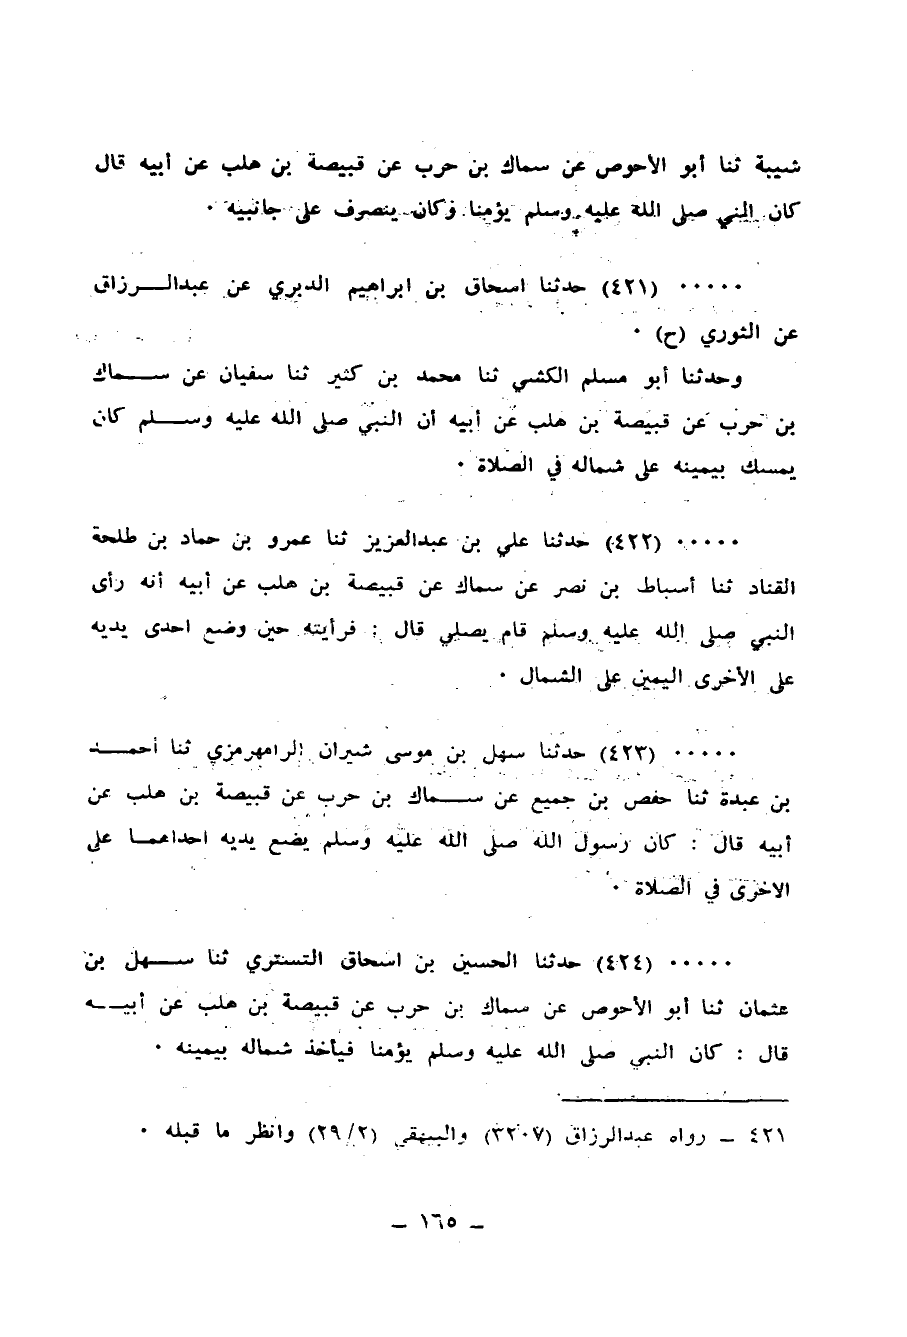 شيبة ثنا أبو الأحوص عن سماك بن حرب عن قبيصة بن هلب عن أبيه قال
كان النبي صلى الله عليه وسلم يؤمنا وكان ينصرف على جانبيه ٠
٠٠٠٠٠ (٤٢١) حدثنا اسحاق بن ابراهيم الدبري عن عبدالـــرزاق
عن الثوري (ح) ٠
وحدثنا أبو مسلم الكشي ثنا محمد بن كثير ثنا سفيان عن ســـماك
بن حرب عن قبيصة بن هلب عن أبيه أن النبي صلى الله عليه وســـلم كان
يمسك بيمينه على شماله في الصلاة ٠
٠٠٠٠٠ (٤٢٢) حدثنا علي بن عبدالعزيز ثنا عمرو بن حماد بن طلحة
القناد ثنا أسباط بن نصر عن سماك عن قبيصة بن هلب عن أبيه أنه رأى
النبي صلى الله عليه وسلم قام يصلي قال : فرأيته حين وضع احدى يديه
على الأخرى اليمين على الشمال ٠
٠٠٠٠٠ (٤٢٣) حدثنا سهل بن موسى شيران الرامهرمزي ثنا أحمـــد
بن عبدة ثنا حفص بن جميع عن ســـماك بن حرب عن قبيصة بن هلب عن
أبيه قال : كان رسول الله صلى الله عليه وسلم يضع يديه احداهمـا على
الاخرى في الصلاة ٠
٠٠٠٠٠ (٤٢٤) حدثنا الحسين بن اسحاق التستري ثنا ســـهل بن
عثمان ثنا أبو الأحوص عن سماك بن حرب عن قبيصة بن هلب عن أبيـــه
قال : كان النبي صلى الله عليه وسلم يؤمنا فيأخذ شماله بيمينه ٠
٤٢١ ـ رواه عبدالرزاق (٣٢٠٧) والبيهقي (٢٩/٢) وانظر ما قبله ٠
ـ ١٦٥ ـ